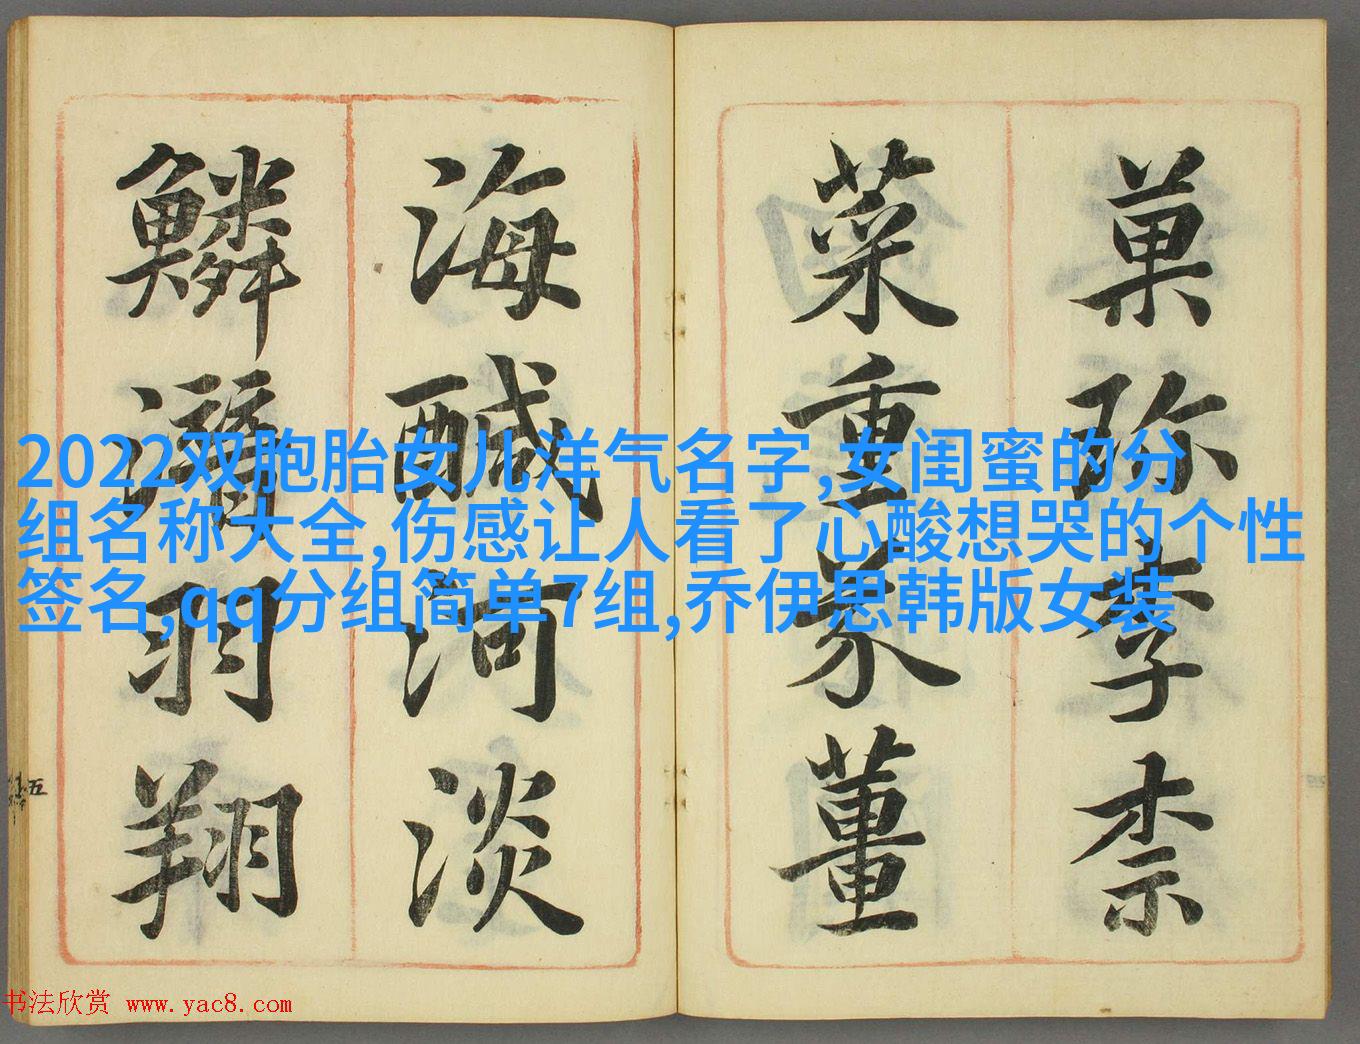 菓珎李柰
菜重芥薑
海醎河淡
鱗潛羽翔
五
2022双胞胎女儿洋气名字,女闺蜜的分
组名称大全,伤感让人看了心酸想哭的个性
签名,qq分组简单7组,乔伊思韩版女装
书法欣赏 www.yac8.com